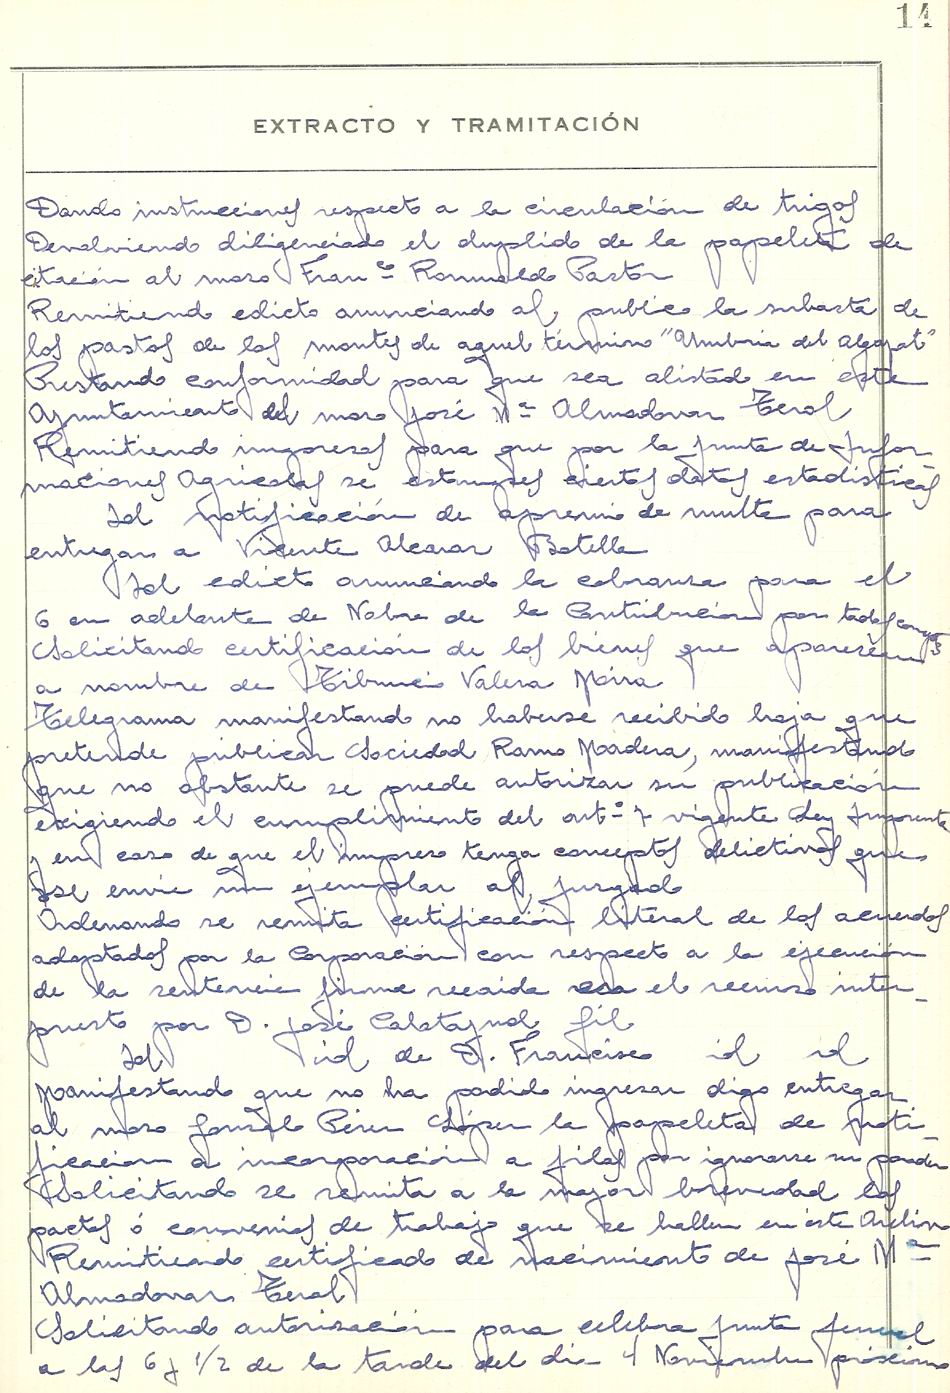 14
EXTRACTO Y TRAMITACIÓN
Dando instrucciones respecto a la circulación de trigos
Devolviendo diligenciado el duplido de la papeleta de
citación al mozo Fran.co Romualdo Pastor
Remitiendo edicto anunciando al publico la subasta de
los pastos de los montes de aquel término "Umbria del Algayat"
Prestando conformidad para que sea alistado en este
Ayuntamiento del mozo José Mª Almodovar Terol
Remitiendo impresos para que por la Junta de Infor-
maciones Agricolas se estampes ciertos datos estadisticos
Id notificación de apremio de multa para
entregar a Vicente Alcaraz Botella
Id edicto anunciando la cobranza para el
6 en adelante de Nobre de la Contribucion por todos concptos
Solicitando certificación de los bienes que aparecen
a nombre de Tiburcio Valera Mira
Telegrama manifestando no haberse recibido hoja que
pretende publicar Sociedad Ramo Madera, manifestando
que no obstante se puede autorizar su publicación
exigiendo el cumplimiento del artº 7 vigente Ley Imprenta
y en caso de que el impreso tenga conceptos delictivos que
se envie un ejemplar al Juzgado
Ordenando se remita certificación literal de los acuerdos
adoptados por la Corporación con respecto a la ejecución
de la sentencia firme recaida en el recurso inter-
puesto por D. José Calatayud Gil
Id id de D. Francisco id id
Manifestando que no ha podido ingresar digo entregar
al mozo Gonzalo Pérez López la papeleta de noti-
ficacion a incorporación a filas por ignorarse su parader
Solicitando se remita a la mayor brevedad los
pactos ó convenios de trabajo que se hallen en este Archivo
Remitiendo certificado de nacimiento de José Mª
Almodovar Terol
Solicitando autorización para celebra junta general
a las 6 y 1/2 de la tarde del dia 4 Noviembre próximo